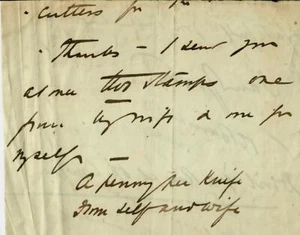 cutters for the
Thanks - I send you
at once two stamps one
from my wife & one for
myself -
A penny per Knife
from self and wife